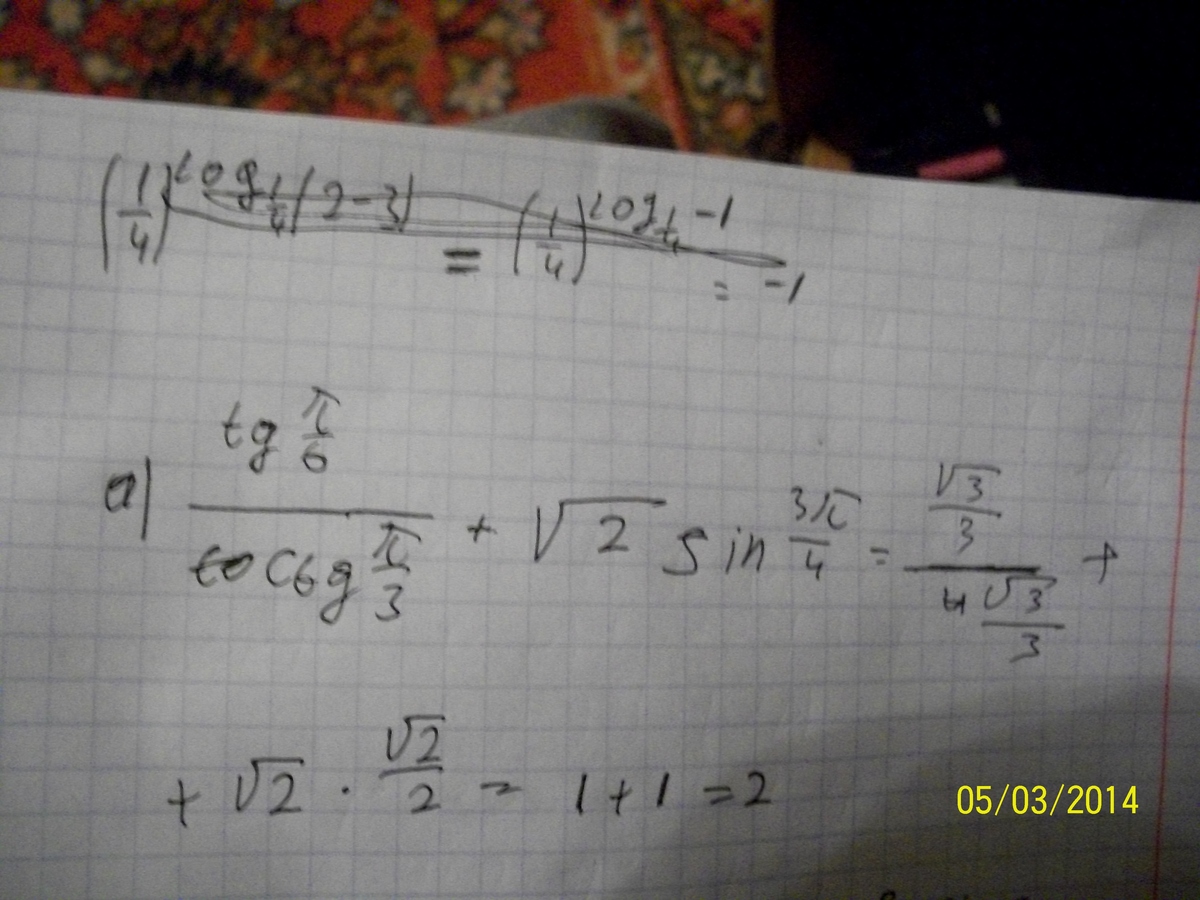 (1/4)^log_{1/4}(2-3) = (1/4)^log_{1/4} -1
= -1
а) tg π/6 / ctg π/3 + √2 sin 3π/4 = √3/3 / √3/3 +
+ √2 · √2/2 = 1+1 = 2
05/03/2014